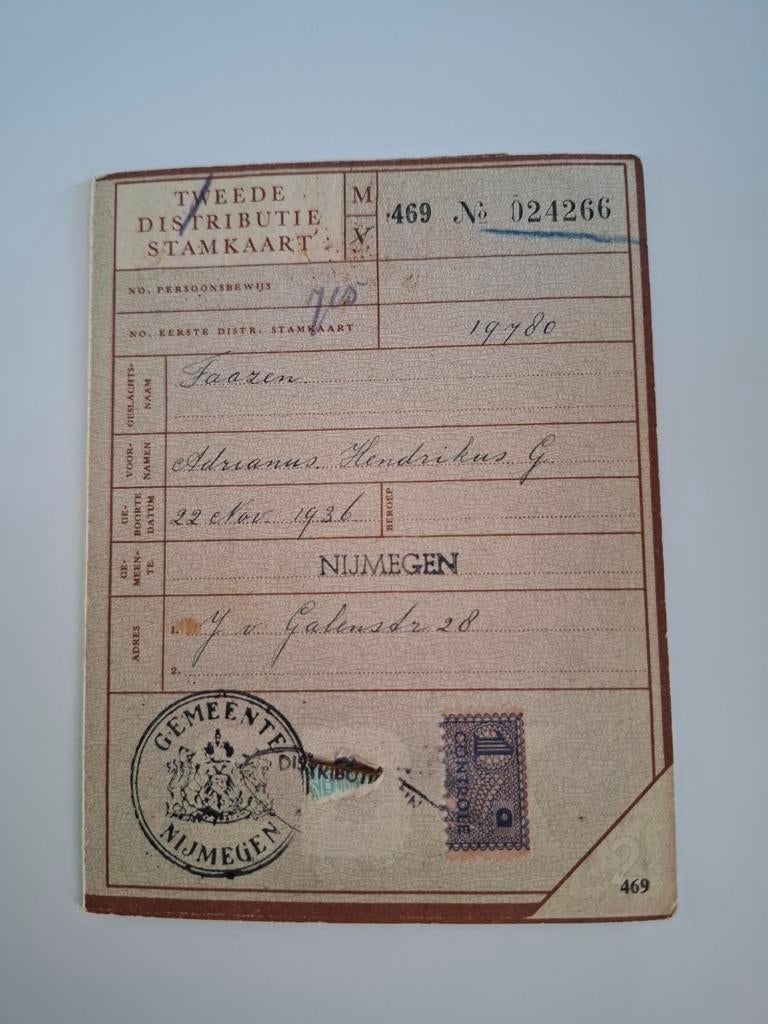 TWEEDE
DISTRIBUTIE
STAMKAART
M
V
469 № 024266
NO. PERSOONSBEWIJS
715
NO. EERSTE DISTR. STAMKAART
19780
GESLACHTS-
NAAM
Faazen
VOOR-
NAMEN
Adrianus Hendrikus G
GE-
BOORTE
DATUM
22 Nov. 1936
BEROEP
GE-
MEEN-
TE
NIJMEGEN
ADRES
1. J v Galenstr 28
2.
GEMEENTE
NIJMEGEN
1
CONTROLE
a
469